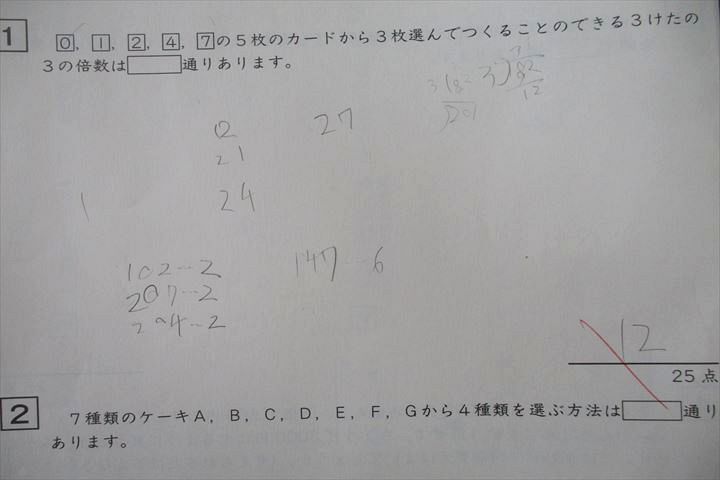 1 0, 1, 2, 4, 7の5枚のカードから3枚選んでつくることのできる3けたの
3の倍数は 通りあります。
27
21
24
1
102…2
147…6
207…2
204…2
12
25点
2 7種類のケーキA, B, C, D, E, F, Gから4種類を選ぶ方法は 通り
あります。